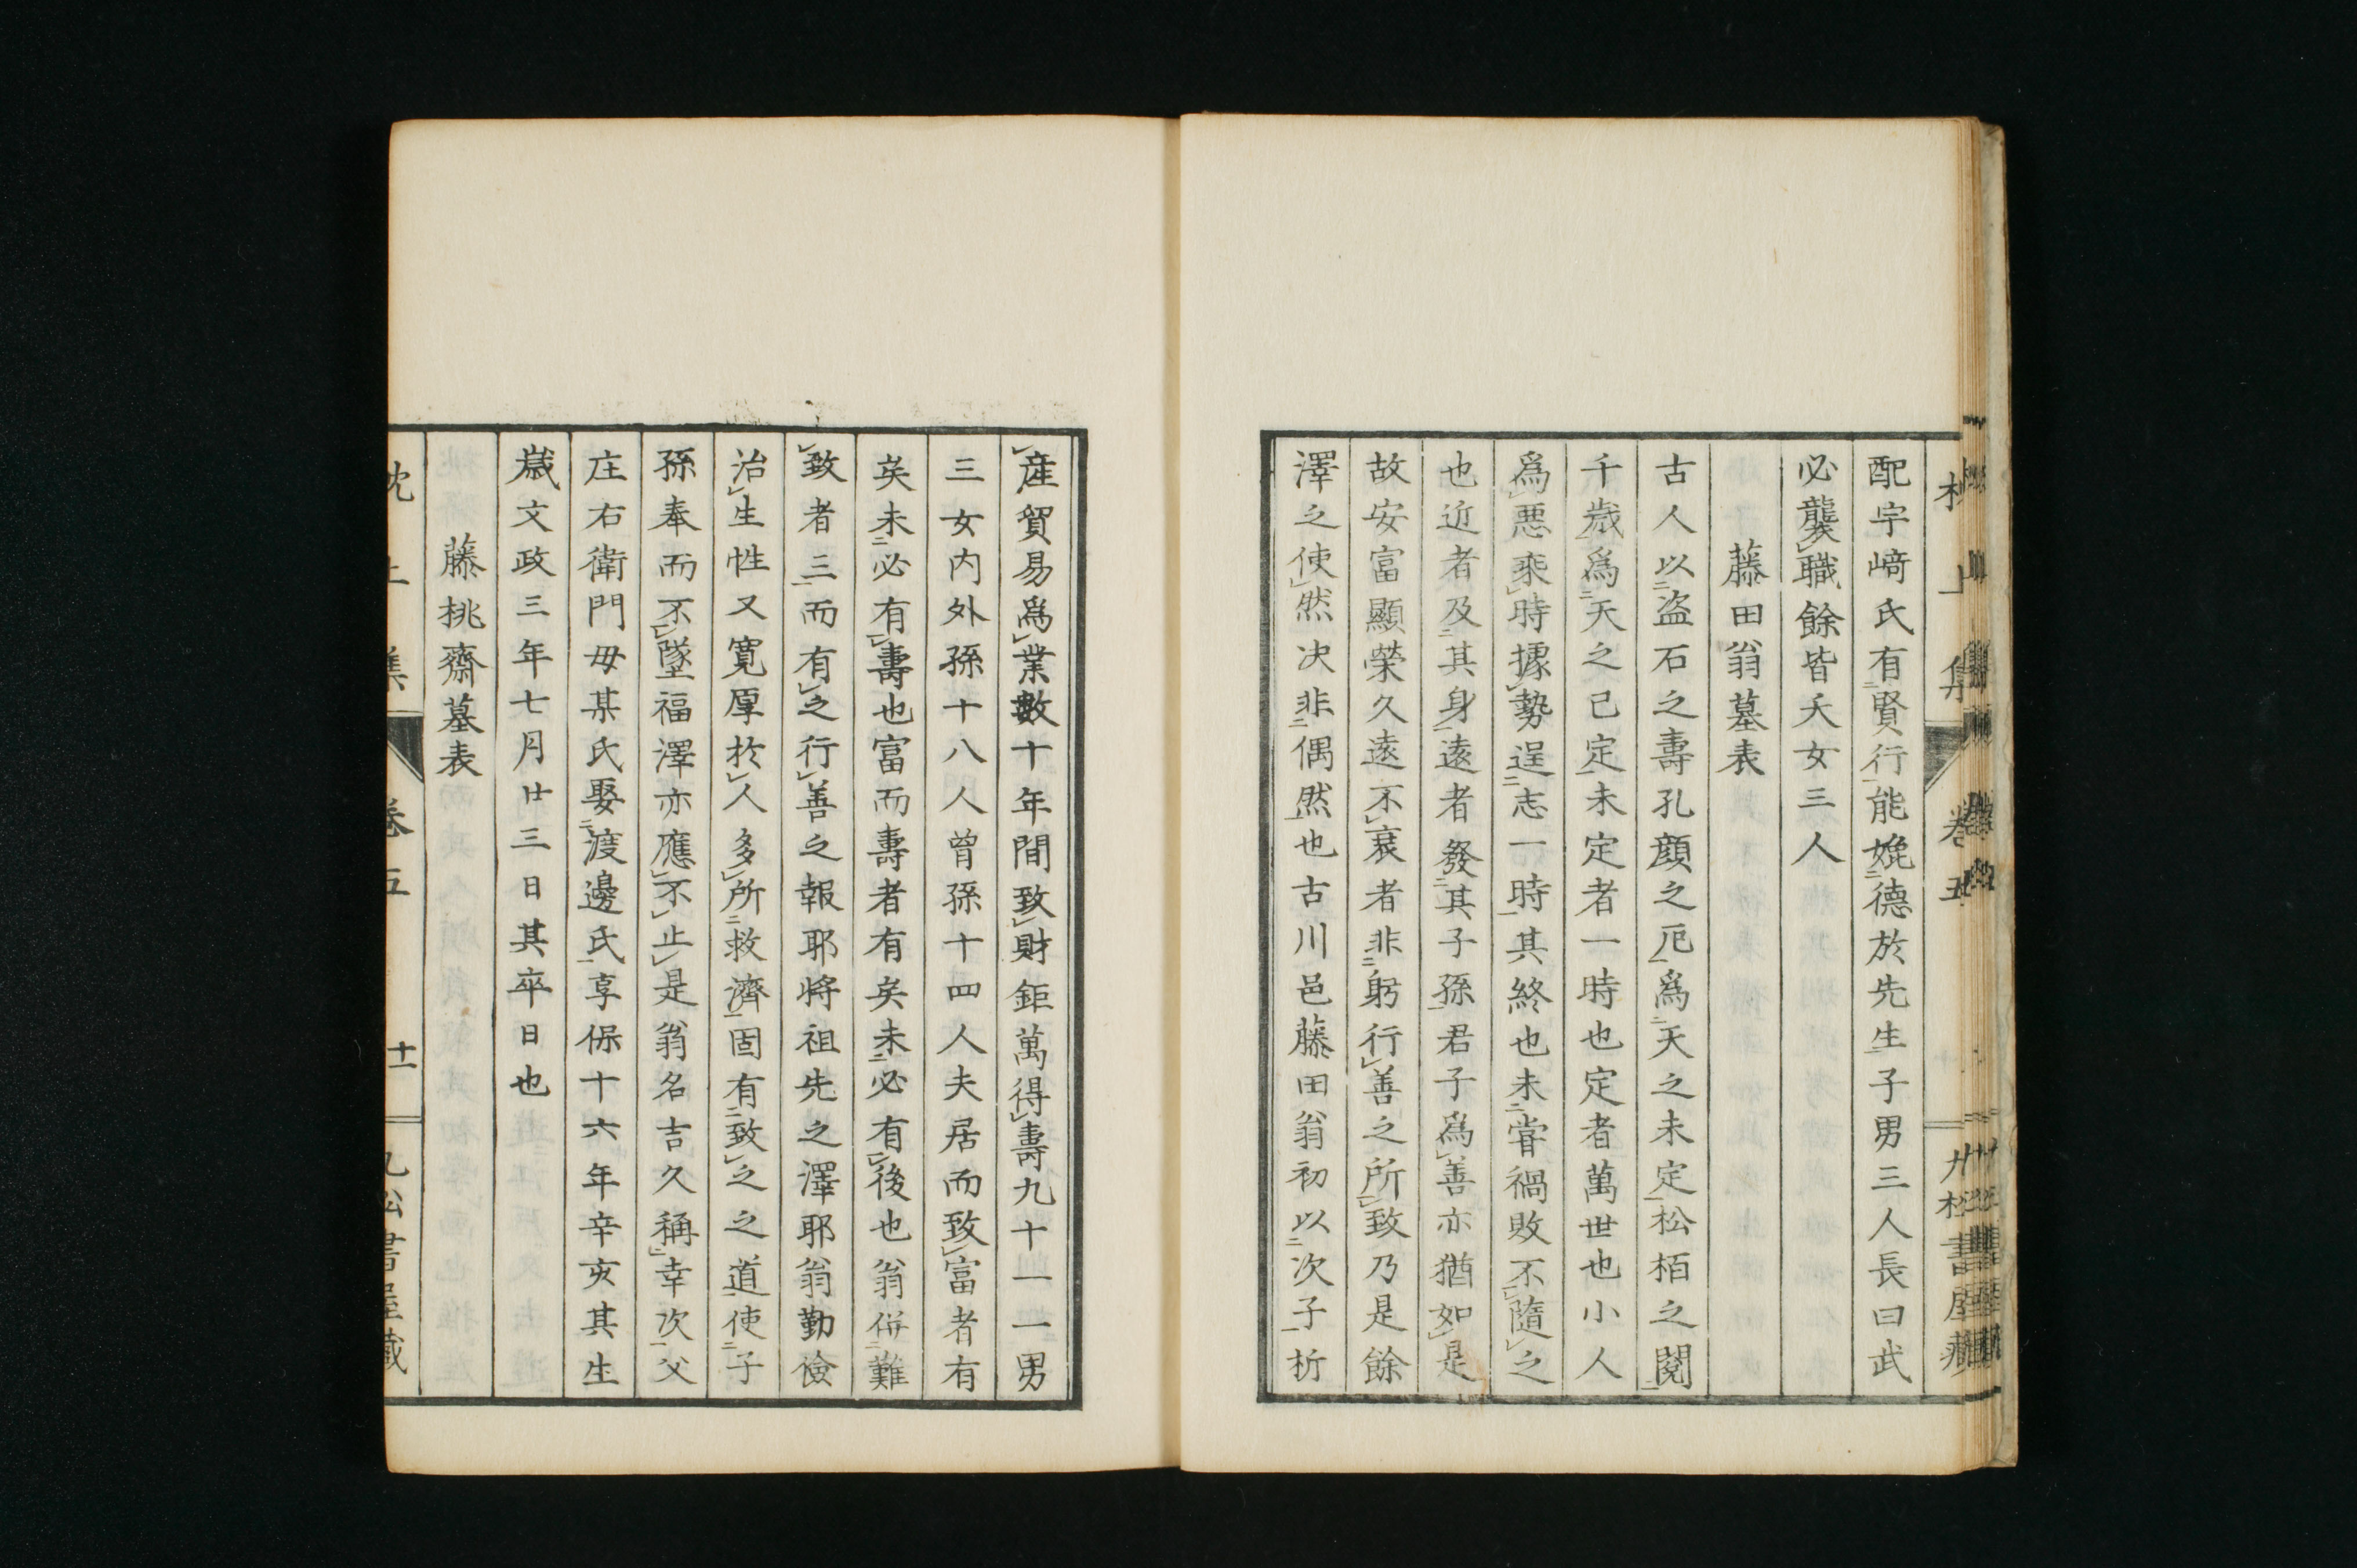 配宇﨑氏有賢行能娩德於先生子男三人長曰武
必襲職餘皆夭女三人
藤田翁墓表
古人以盜石之壽孔顏之厄爲天之未定松栢之閱
千歲爲天之已定未定者一時也定者萬世也小人
爲惡乘時據勢逞志一時其終也未甞禍敗不隨之
也近者及其身遠者發其子孫君子爲善亦猶如是
故安富顯榮久遠不衰者非躬行善之所致乃是餘
澤之使然決非偶然也古川邑藤田翁初以次子析
產貿易爲業數十年間致財鉅萬得壽九十一一男
三女内外孫十八人曾孫十四人夫居而致富者有
矣未必有壽也富而壽者有矣未必有後也翁併難
致者三而有之行善之報耶將祖先之澤耶翁勤儉
治生性又寬厚於人多所救濟固有致之之道使子
孫奉而不墜福澤亦應不止是翁名吉久稱幸次父
庄右衛門毋某氏娶渡邊氏享保十六年辛亥其生
歲文政三年七月廿三日其卒日也
藤桃齋墓表
卷五
十一